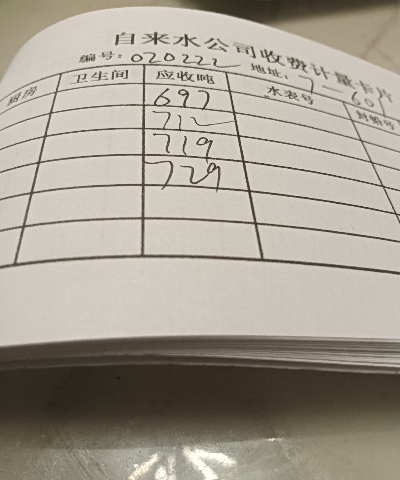 自来水公司收费计量卡片
编号：020222 地址：7-60
厨房 卫生间 应收吨 水表号
697
712
719
729